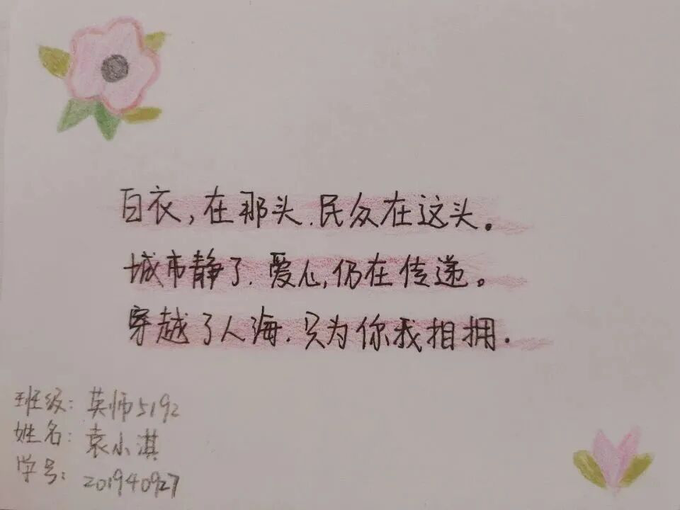 白衣,在那头.民众在这头。
城市静了.爱心,仍在传递。
穿越了人海.只为你我相拥.
班级:英师5192
姓名:袁小淇
学号:201940927